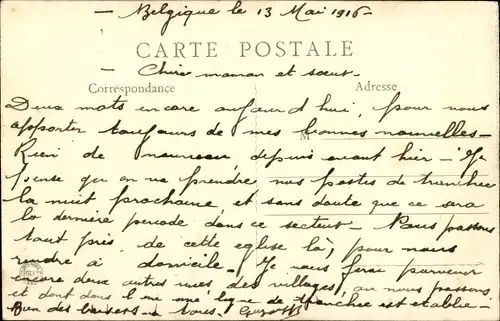 - Belgique le 13 Mai 1916 -
CARTE POSTALE
- Chère maman et sœur -
Correspondance
Adresse
Deux mots encore aujourd'hui, pour vous
apporter toujours de mes bonnes nouvelles -
M
Rien de nouveau, depuis avant hier - Je
pense qu on va prendre nos postes de tranchée
la nuit prochaine et sans doute que ce sera
la dernière periode dans ce secteur - Nous passons
tout près de cette eglise là, pour nous
rendre à domicile. Je vous ferai parvenir
encore deux autres vues, des villages, où nous passons
et dont dans l'une une ligne de tranchée est etablie -
Bien des baisers - à tous -